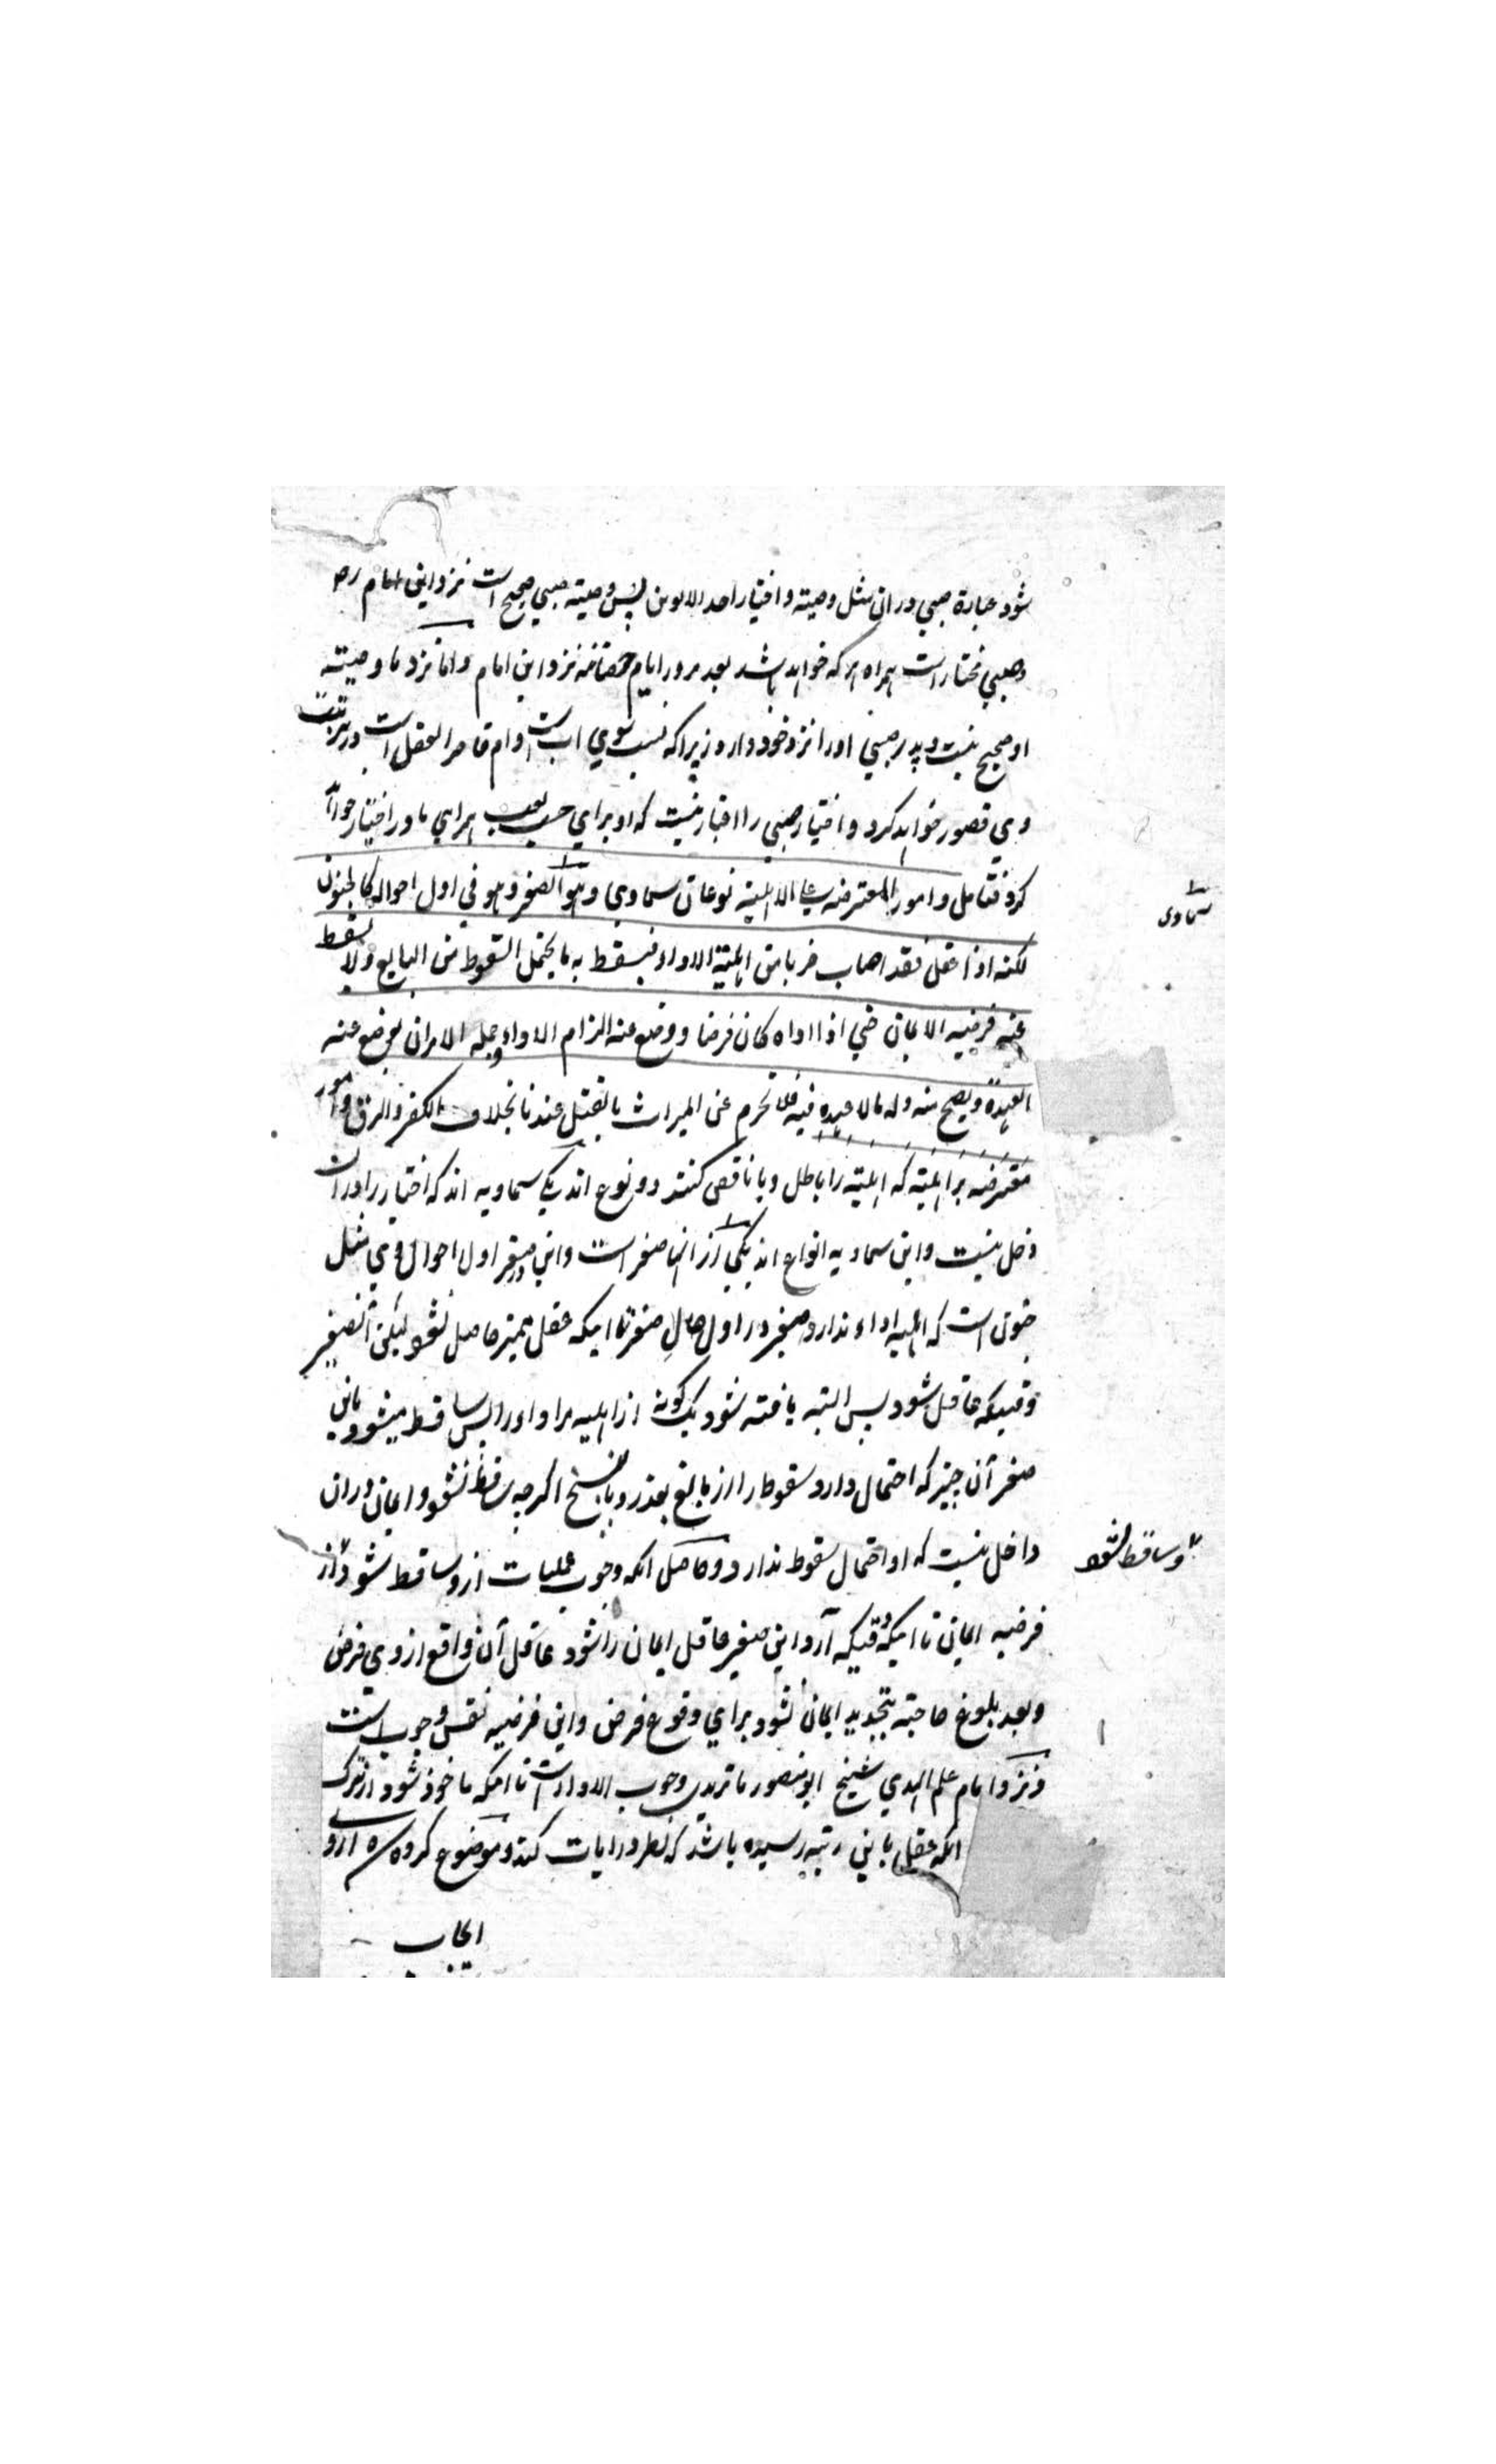 شود عبارة صبي دران مثل وصيته و اختيار احد الابوين پس وصيته صبي صحيح است نزد اين امام رح
و صبي مختار است همراه هر كه خواهد باشد بعد مرور ايام حضانه نزد اين امام و اما نزد ما وصيته
او صحيح نيست و پدر صبي او را نزد خود دارد زيرا كه نسب سوي اب است و ام قاصر العقل است در تربيت
وي قصور خواهد كرد و اختيار صبي را اعتبار نيست كه او براي لعب همراهي مادر اختيار خواهد
كرد فتامل و امور المعترضه علي الاهلية نوعان سماوي و هو الصغر و هو في اول احواله كالجنون
لكنه اذا عقل فقد اصاب ضربا من اهلية الاداء فيسقط به ما يحتمل السقوط من البالغ و لا يسقط
عنه فرضيه الايمان حتي اذا اداه كان فرضا و وضع عنه الزام الاداء و جمله الامر ان يوضع عنه
العهدة و يصح منه و له ما لا عهده فيه فلا يحرم عن الميراث بالقتل عندنا بخلاف الكفر و الرق و امور
معترضه بر اهليته كه اهليته را باطل و يا ناقص كنند دو نوع اند يكي سماويه اند كه اختيار را دران
دخل نيست و اين سماويه انواع اند يكي از انها صغر است و اين صغر در اول احوال وي مثل
جنون است كه اهليه اداء ندارد صغير در اول حال صغر تا اينكه عقل تميز حاصل نشود ليكن آن صغير
وقتيكه عاقل شود پس البته يافته شود يك گونه از اهليه مر او را پس ساقط ميشود باين
صغر آن چيز كه احتمال دارد سقوط را از بالغ بعذر و بالنسخ اگرچه ساقط نشود و ايمان دران
داخل نيست كه او احتمال سقوط ندارد و حاصل انكه وجوب عمليات ازو ساقط شود از
فرضيه ايمان تا اينكه وقتيكه آرد اين صغير عاقل ايمان را شود واقع از وي فرض
و بعد بلوغ حاجته بتجديد ايمان نشود براي وقوع فرض و اين فرضيه نفس وجوب است
و نزد امام علم الهدي شيخ ابو منصور ماتريدي وجوب الاداء است تا اينكه ماخوذ شود از ترك
انكه عقل باين رتبه رسيده باشد كه نظر در ايات كند و موضوع كرده شده ازو
ايجاب
سماوي
و ساقط نشود